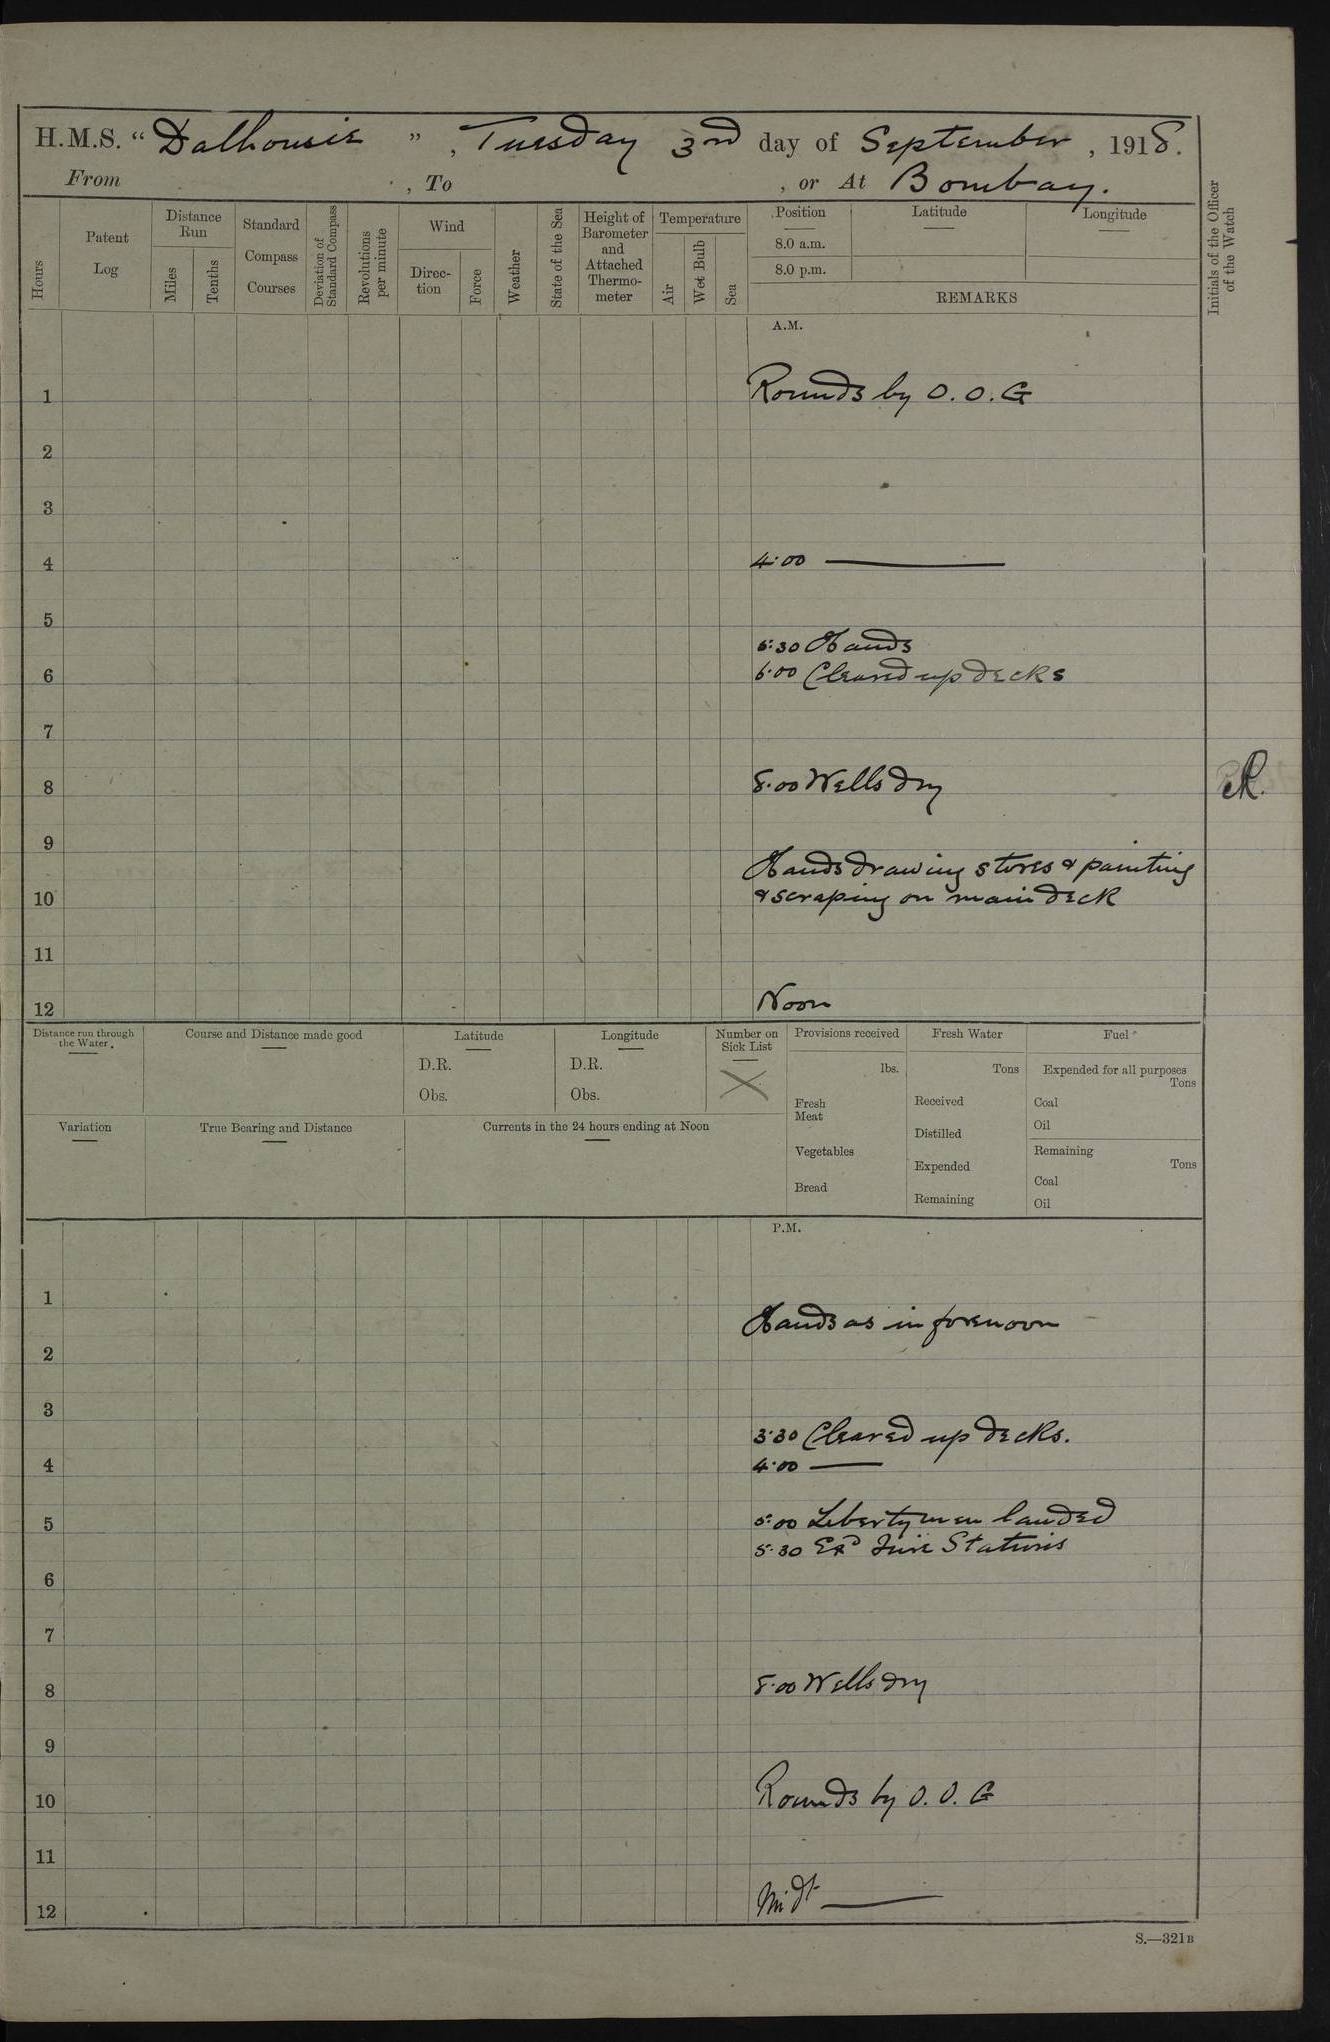 H.M.S. “Dalhousie”, Tuesday 3rd day of September, 1918.
From , To , or At Bombay.
Hours
Patent Log
Distance Run
Miles
Tenths
Standard Compass Courses
Deviation of Standard Compass
Revolutions per minute
Wind
Direc-tion
Force
Weather
State of the Sea
Height of Barometer and Attached Thermo-meter
Temperature
Air
Wet Bulb
Sea
Position
8.0 a.m.
8.0 p.m.
Latitude
Longitude
REMARKS
Initials of the Officer of the Watch
A.M.
1 Rounds by O.O.G
2
3
4 4.00 ———
5
5.30 Hands
6 6.00 Cleared up decks
7
8 8.00 Wells dry
9
Hands drawing stores & painting
10 & scraping on main deck
11
12 Noon
Distance run through the Water.
Course and Distance made good
Latitude
D.R.
Obs.
Longitude
D.R.
Obs.
Number on Sick List
X
Variation
True Bearing and Distance
Currents in the 24 hours ending at Noon
Provisions received
lbs.
Fresh Meat
Vegetables
Bread
Fresh Water
Tons
Received
Distilled
Expended
Remaining
Fuel
Expended for all purposes
Tons
Coal
Oil
Remaining
Tons
Coal
Oil
P.M.
1
Hands as in forenoon
2
3
3.30 Cleared up decks.
4 4.00 ———
5 5.00 Liberty men landed
5.30 Exd Fire Stations
6
7
8 8.00 Wells dry
9
10 Rounds by O.O.G
11
12 Midt ———
S.—321B